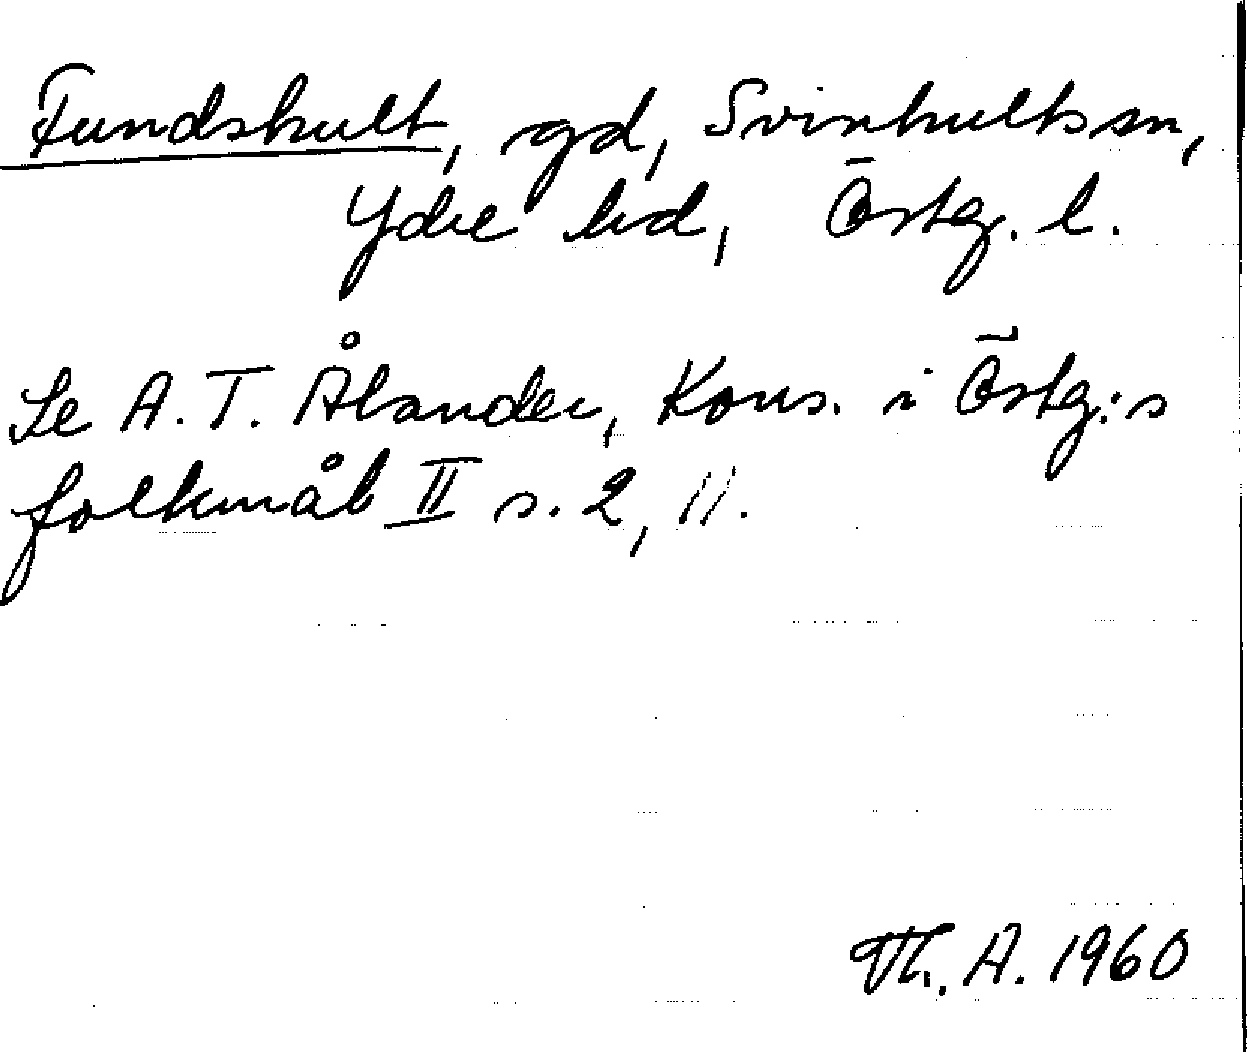 Fundshult, gd, Svinhults sn,
Ydre hd, Östg. l.
Se A. T. Ålander, Kons. i Östg:s
folkmål II s. 2, 11.
Th. A. 1960